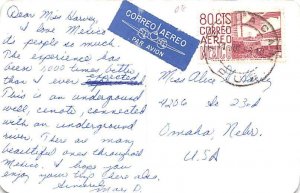 Dear Miss Harvey,
I love Mexico &
its people so much.
The experience has
been 1,000 times better
than I ever expected.
This is an underground
well, cinote, connected
with an underground
river. There are many
beautiful ones throughout
Mexico. I hope you
enjoy your trip there also.
Sincerely,
CORREO AEREO
PAR AVION
80 CTS
CORREO
AEREO
MEXICO
Miss Alice
4256 So 23rd
Omaha, Nebr.
USA